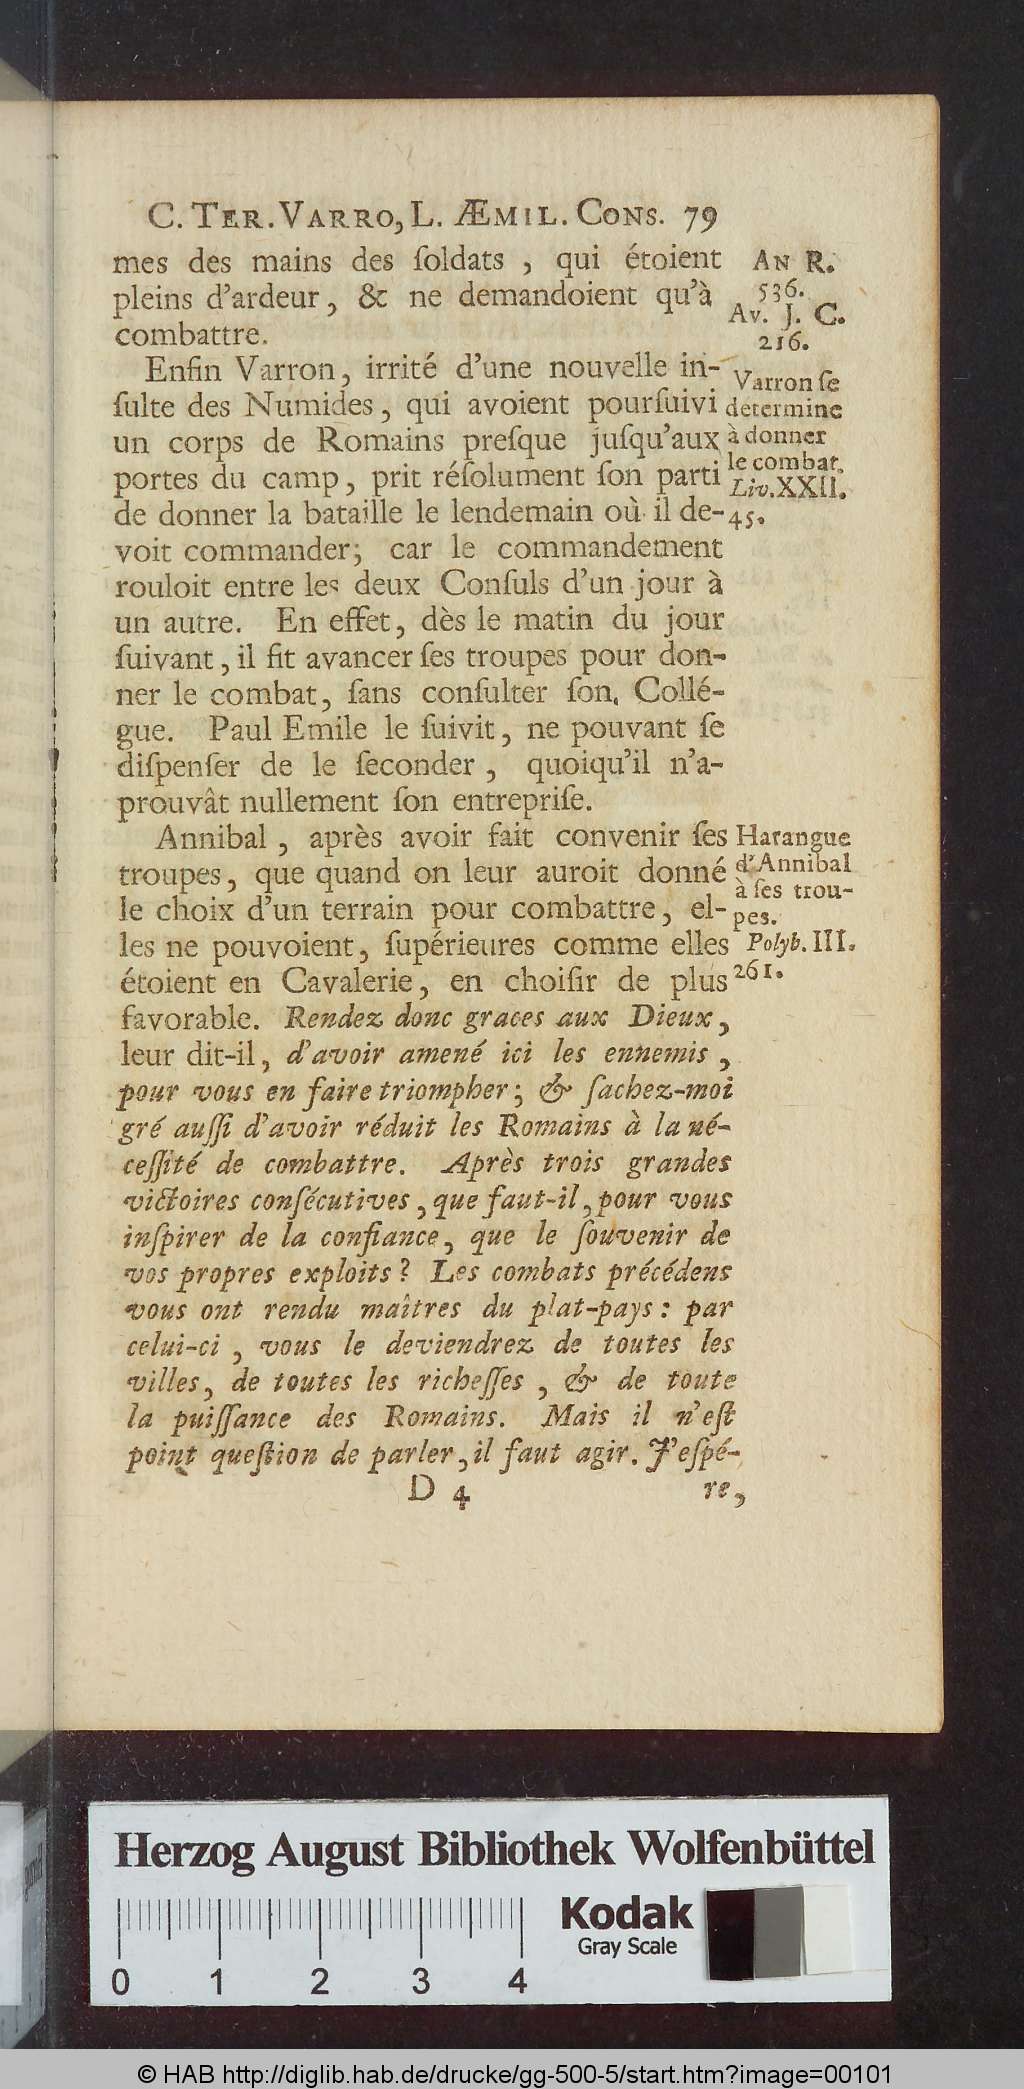 C. TER. VARRO, L. ÆMIL. CONS. 79
mes des mains des ſoldats , qui étoient
pleins d'ardeur, & ne demandoient qu'à
combattre.
AN R.
536.
Av. J. C.
216.
Enfin Varron, irrité d'une nouvelle in-
ſulte des Numides, qui avoient pourſuivi
un corps de Romains preſque juſqu'aux
portes du camp, prit réſolument ſon parti
de donner la bataille le lendemain où il de-
voit commander; car le commandement
rouloit entre les deux Conſuls d'un jour à
un autre. En effet, dès le matin du jour
ſuivant, il fit avancer ſes troupes pour don-
ner le combat, ſans conſulter ſon Collé-
gue. Paul Emile le ſuivit, ne pouvant ſe
diſpenſer de le ſeconder , quoiqu'il n'a-
prouvât nullement ſon entrepriſe.
Varron ſe
determine
à donner
le combat.
Liv. XXII.
45.
Annibal , après avoir fait convenir ſes
troupes, que quand on leur auroit donné
le choix d'un terrain pour combattre, el-
les ne pouvoient, ſupérieures comme elles
étoient en Cavalerie, en choiſir de plus
favorable. Rendez donc graces aux Dieux,
leur dit-il, d'avoir amené ici les ennemis ,
pour vous en faire triompher; & ſachez-moi
gré auſſi d'avoir réduit les Romains à la né-
ceſſité de combattre. Après trois grandes
victoires conſécutives, que faut-il, pour vous
inſpirer de la confiance, que le ſouvenir de
vos propres exploits? Les combats précédens
vous ont rendu maîtres du plat-pays: par
celui-ci , vous le deviendrez de toutes les
villes, de toutes les richeſſes , & de toute
la puiſſance des Romains. Mais il n'eſt
point queſtion de parler, il faut agir. J'eſpé-
Harangue
d'Annibal
à ſes trou-
pes.
Polyb. III.
261.
D 4
re,
Herzog August Bibliothek Wolfenbüttel
Kodak
Gray Scale
0 1 2 3 4
© HAB http://diglib.hab.de/drucke/gg-500-5/start.htm?image=00101